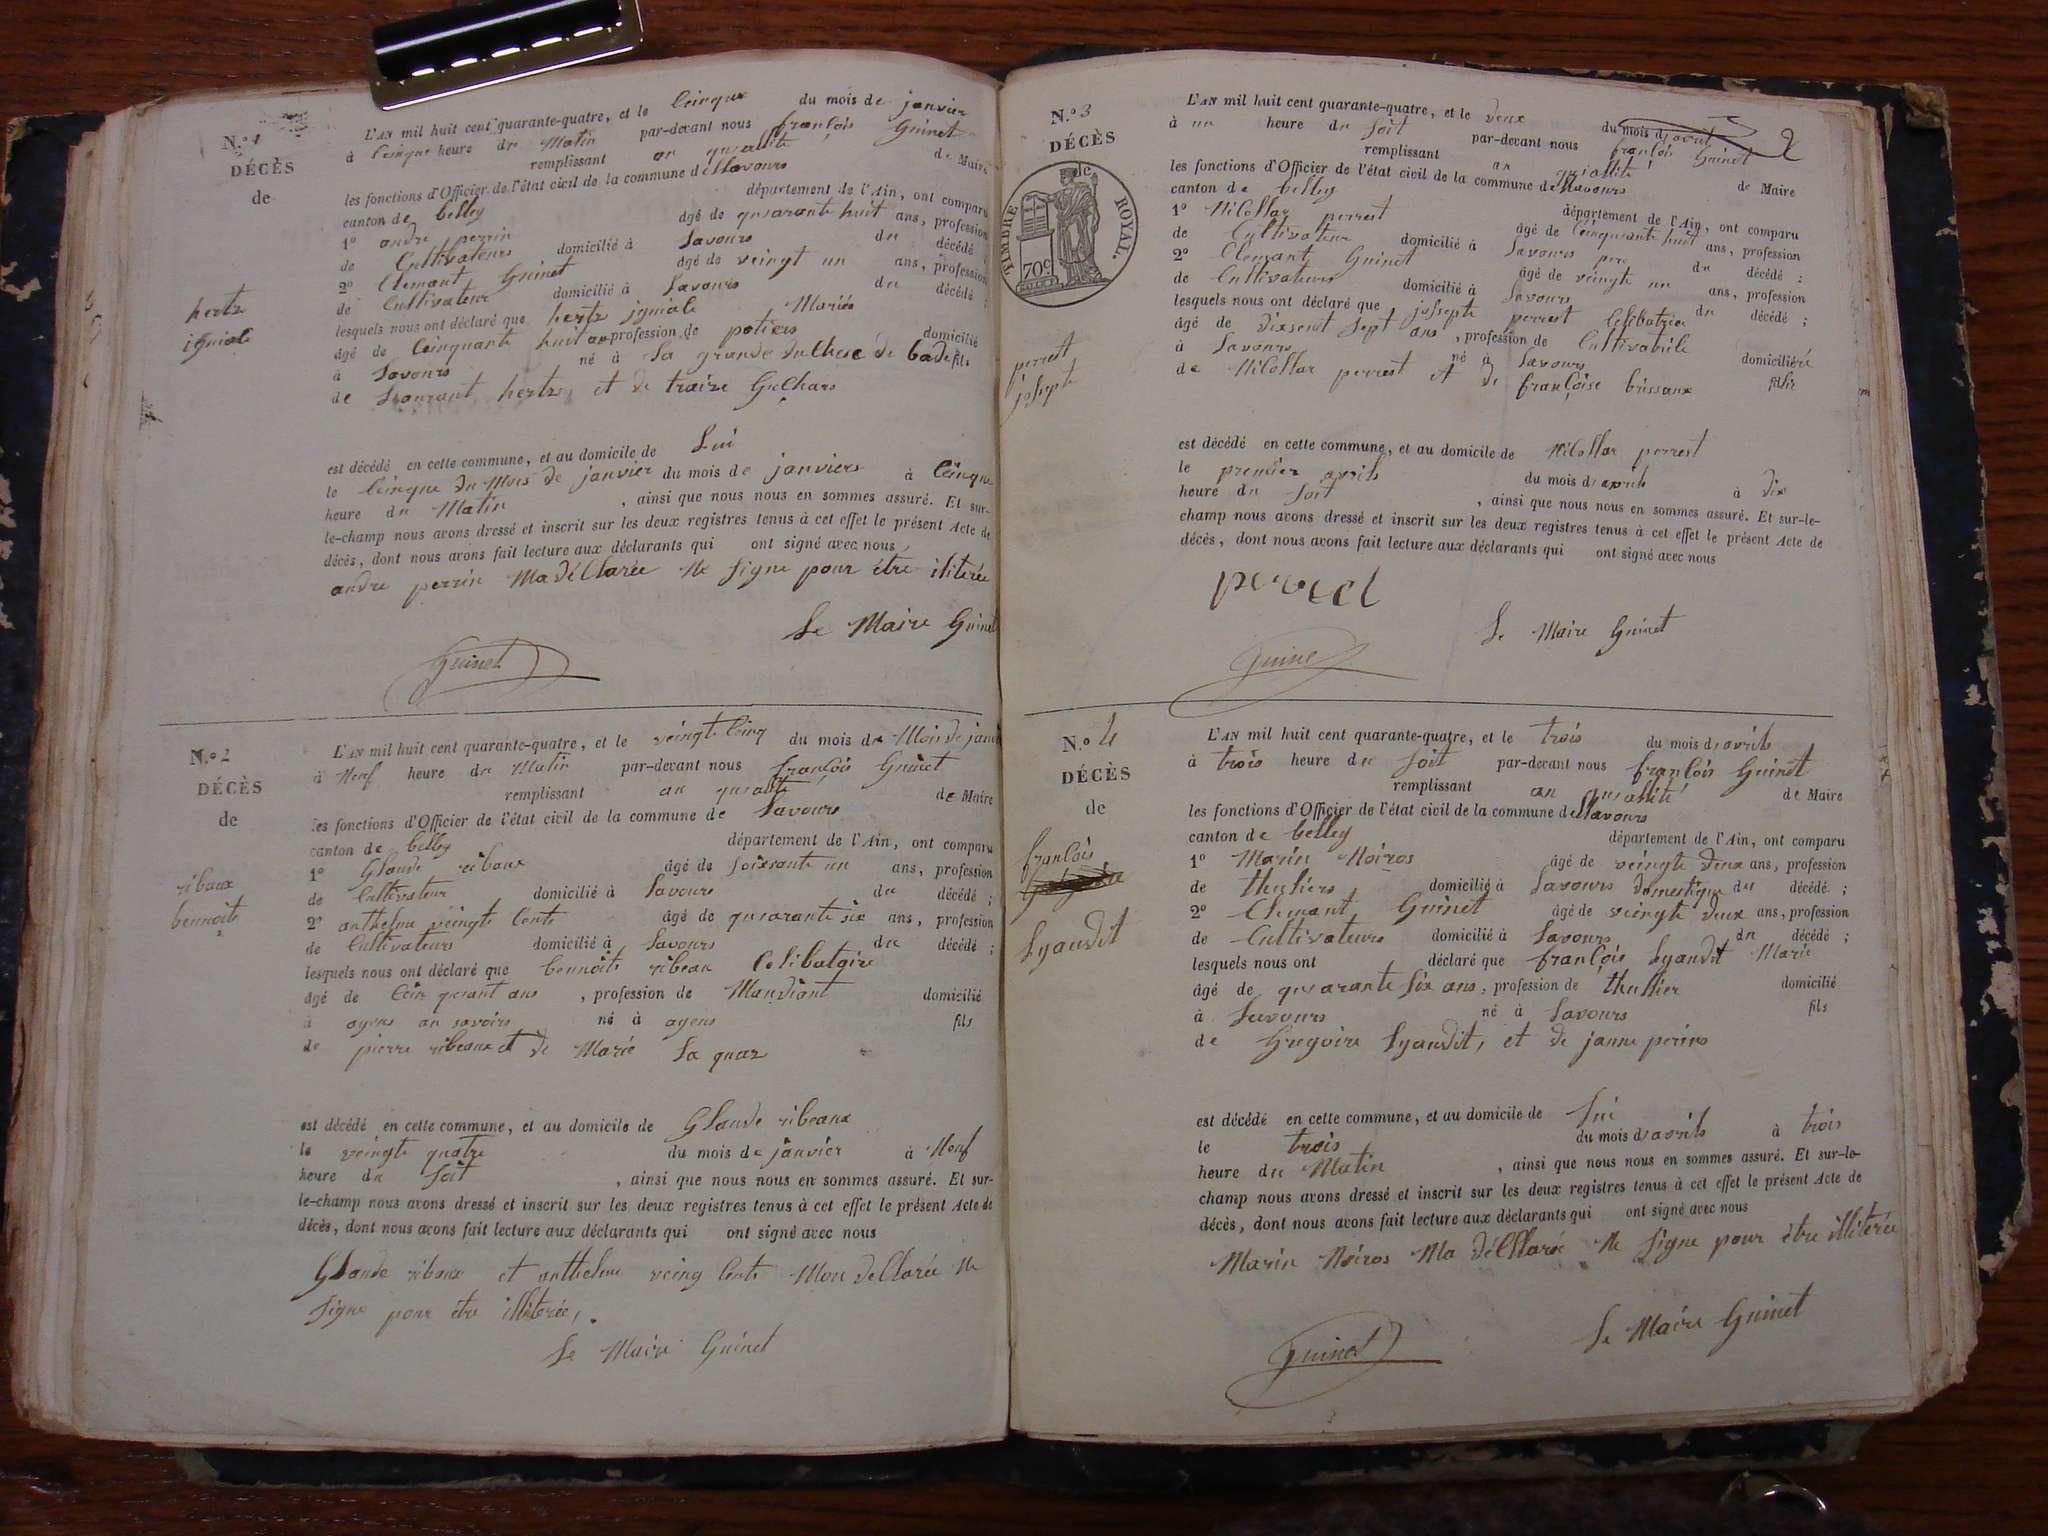 N.º 1
DÉCÈS
de
hertz
igniale
L'AN mil huit cent quarante-quatre, et le Cinque du mois de janvier
à Cinque heure du Matin par-devant nous françois Guinet
remplissant an qusalité de Maire
les fonctions d'Officier de l'état civil de la commune de Savours
canton de belley département de l'Ain, ont comparu
1º andre perrin âgé de qusarante huit ans, profession
de Cultivateurs domicilié à Savours du décédé ;
2º Clemant Guinet âgé de veingt un ans, profession
de Cultivateur domicilié à Savours du décédé ;
lesquels nous ont déclaré que hertz igniale Mariés
âgé de Cinquante huit an profession de potiers domicilié
à Savours né à la grande duchese de bade fils
de Lourant hertz, et de traize Guchars
est décédé en cette commune, et au domicile de Lui
le Cinque du Mois de janvier du mois de janviers à Cinque
heure du Matin , ainsi que nous nous en sommes assuré. Et sur-
le-champ nous avons dressé et inscrit sur les deux registres tenus à cet effet le présent Acte de
décès, dont nous avons fait lecture aux déclarants qui ont signé avec nous
andre perrin Ma déClarée Ne signe pour étre iliterée
Le Maire Guinet
Guinet
N.º 2
DÉCÈS
de
ribaux
bennoits
L'AN mil huit cent quarante-quatre, et le veingt Cinq du mois de Mois de janvi
à Neuf heure du Matin par-devant nous françois Guinet
remplissant an qusalité de Maire
les fonctions d'Officier de l'état civil de la commune de Savours
canton de belley département de l'Ain, ont comparu
1º Glaude ribaux âgé de soixsante un ans, profession
de Cultivateur domicilié à Savours du décédé ;
2º anthelme veingts Cents âgé de qusarante six ans, profession
de Cultivateurs domicilié à Savours du décédé ;
lesquels nous ont déclaré que bennoits ribeau Celibataire
âgé de Cein qusant ans , profession de Mandiant domicilié
à ayens an savoirs né à ayens fils
de pierre ribeaux et de Marie La quaz
est décédé en cette commune, et au domicile de Glaude ribeaux
le veingte quatre du mois de janvier à Neuf
heure du soit , ainsi que nous nous en sommes assuré. Et sur-
le-champ nous avons dressé et inscrit sur les deux registres tenus à cet effet le présent Acte de
décès, dont nous avons fait lecture aux déclarants qui ont signé avec nous
Glaude ribaux et anthelme veing Cents Mon deClarée Ne
signe pour étre illiterée,.
Le Maire Guinet
N.º 3
DÉCÈS
de
TIMBRE ROYAL.
70c
perret
joseph
L'AN mil huit cent quarante-quatre, et le deux du mois d'avril
2
à un heure du soit par-devant nous françois Guinet
remplissant an qusallité de Maire
les fonctions d'Officier de l'état civil de la commune de Savours
canton de belley département de l'Ain, ont comparu
1º NiCollar perret âgé de Cinqusante huit ans, profession
de Cultivateur domicilié à Savours pere du décédé ;
2º Clemant Guinet âgé de veingte un ans, profession
de Cultivateurs domicilié à Savours du décédé ;
lesquels nous ont déclaré que josepte perret Celibatrier
âgé de dixsent sept ans , profession de Cultivatriele domiciliéré
à Savours né à Savours filsie
de NiCollar perret et de françoise brissaux
est décédé en cette commune, et au domicile de NiCollar perret
le premier avrils du mois d'avrils à dix
heure du soit , ainsi que nous nous en sommes assuré. Et sur-le-
champ nous avons dressé et inscrit sur les deux registres tenus à cet effet le présent Acte de
décès, dont nous avons fait lecture aux déclarants qui ont signé avec nous
perret
Le Maire Guinet
Guine
N.º 4
DÉCÈS
de
françois
Lyaudit
L'AN mil huit cent quarante-quatre, et le trois du mois d'avrils
à trois heure du soit par-devant nous françois Guinet
remplissant an qusalité de Maire
les fonctions d'Officier de l'état civil de la commune de Savours
canton de belley département de l'Ain, ont comparu
1º Marin Noiros âgé de veingte deux ans, profession
de thuliers domicilié à Savours domestique du décédé ;
2º Clemant Guinet âgé de veingte deux ans, profession
de Cultivateurs domicilié à Savours du décédé ;
lesquels nous ont déclaré que françois Lyaudit Marié
âgé de qusarante six ans, profession de thullier domicilié
à Savours né à Savours fils
de Gregoire Lyaudit, et de janne perins
est décédé en cette commune, et au domicile de Lui
le trois du mois d'avrils à trois
heure du Matin , ainsi que nous nous en sommes assuré. Et sur-le-
champ nous avons dressé et inscrit sur les deux registres tenus à cet effet le présent Acte de
décès, dont nous avons fait lecture aux déclarants qui ont signé avec nous
Marin Noiros Ma déCllarée Ne signe pour étre illiterée
Le Maire Guinet
Guinet